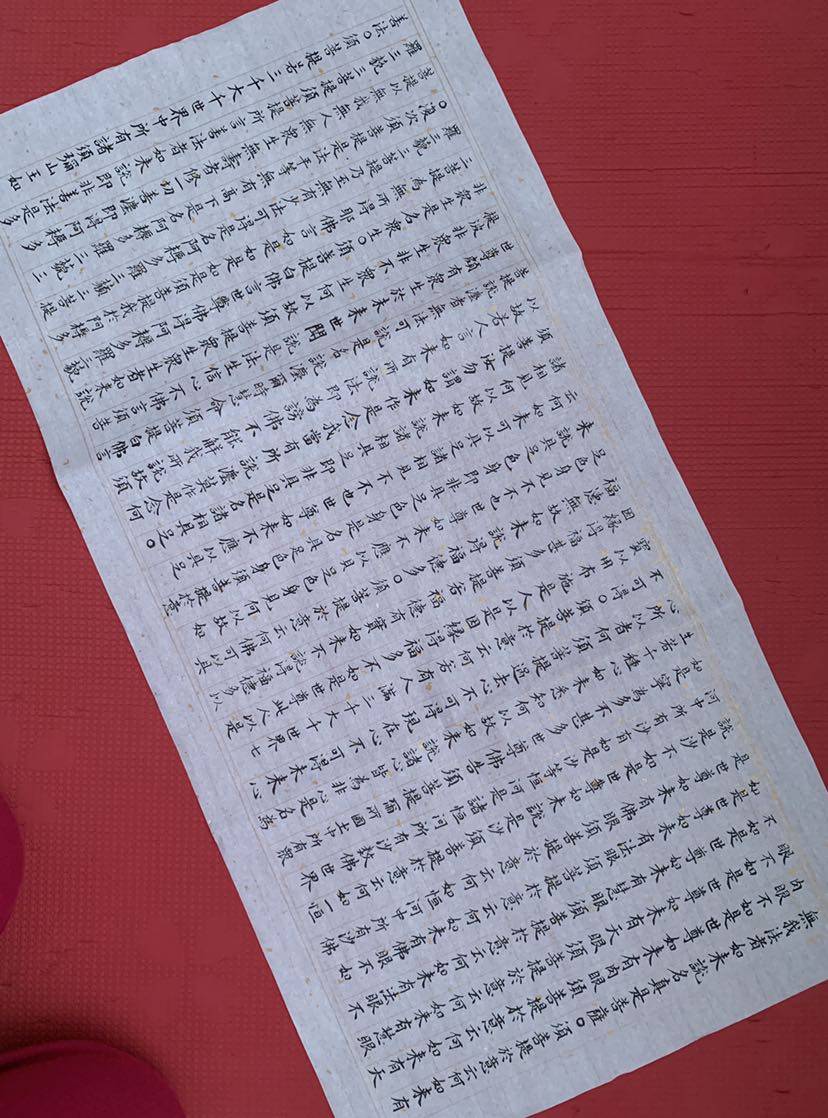 無我法者如來說名真是菩薩。須菩提於意云何如來有
肉眼不如是世尊如來有肉眼須菩提於意云何如來有天
眼不如是世尊如來有天眼須菩提於意云何如來有慧眼
不如是世尊如來有慧眼須菩提於意云何如來有法眼不
如是世尊如來有法眼須菩提於意云何如來有佛眼不如
是世尊如來有佛眼須菩提於意云何如恒河中所有沙佛
說是沙不如是世尊如來說是沙須菩提於意云何如一恒
河中所有沙有如是沙等恒河是諸恒河所有沙數佛世界
如是寧為多不甚多世尊佛告須菩提爾所國土中所有眾
生若干種心如來悉知何以故如來說諸心皆為非心是名為
心所以者何須菩提過去心不可得現在心不可得未來心
不可得。須菩提於意云何若有人滿三千大千世界七
寶以用布施是人以是因緣得福多不如是世尊此人以是
因緣得福甚多須菩提若福德有實如來不說得福德多以
福德無故如來說得福德多。須菩提於意云何佛可以具
足色身見不不也世尊如來不應以具足色身見何以故如
來說具足色身即非具足色身是名具足色身須菩提於意
云何如來可以具足諸相見不不也世尊如來不應以具足
諸相見何以故如來說諸相具足即非具足是名諸相具足。
須菩提汝勿謂如來作是念我當有所說法莫作是念何
以故若人言如來有所說法即為謗佛不能解我所說故須
菩提說法者無法可說是名說法爾時慧命須菩提白佛言
世尊頗有眾生於未來世聞說是法生信心不佛言須菩
提彼非眾生非不眾生何以故須菩提眾生眾生者如來說
非眾生是名眾生。須菩提白佛言世尊佛得阿耨多羅三藐
三菩提為無所得耶佛言如是如是須菩提我於阿耨多
羅三藐三菩提乃至無有少法可得是名阿耨多羅三藐三菩提
。復次須菩提是法平等無有高下是名阿耨多羅三藐三
菩提以無我無人無眾生無壽者修一切善法即得阿耨多
羅三藐三菩提須菩提所言善法者如來說即非善法是名
善法。須菩提若三千大千世界中所有諸須彌山王如